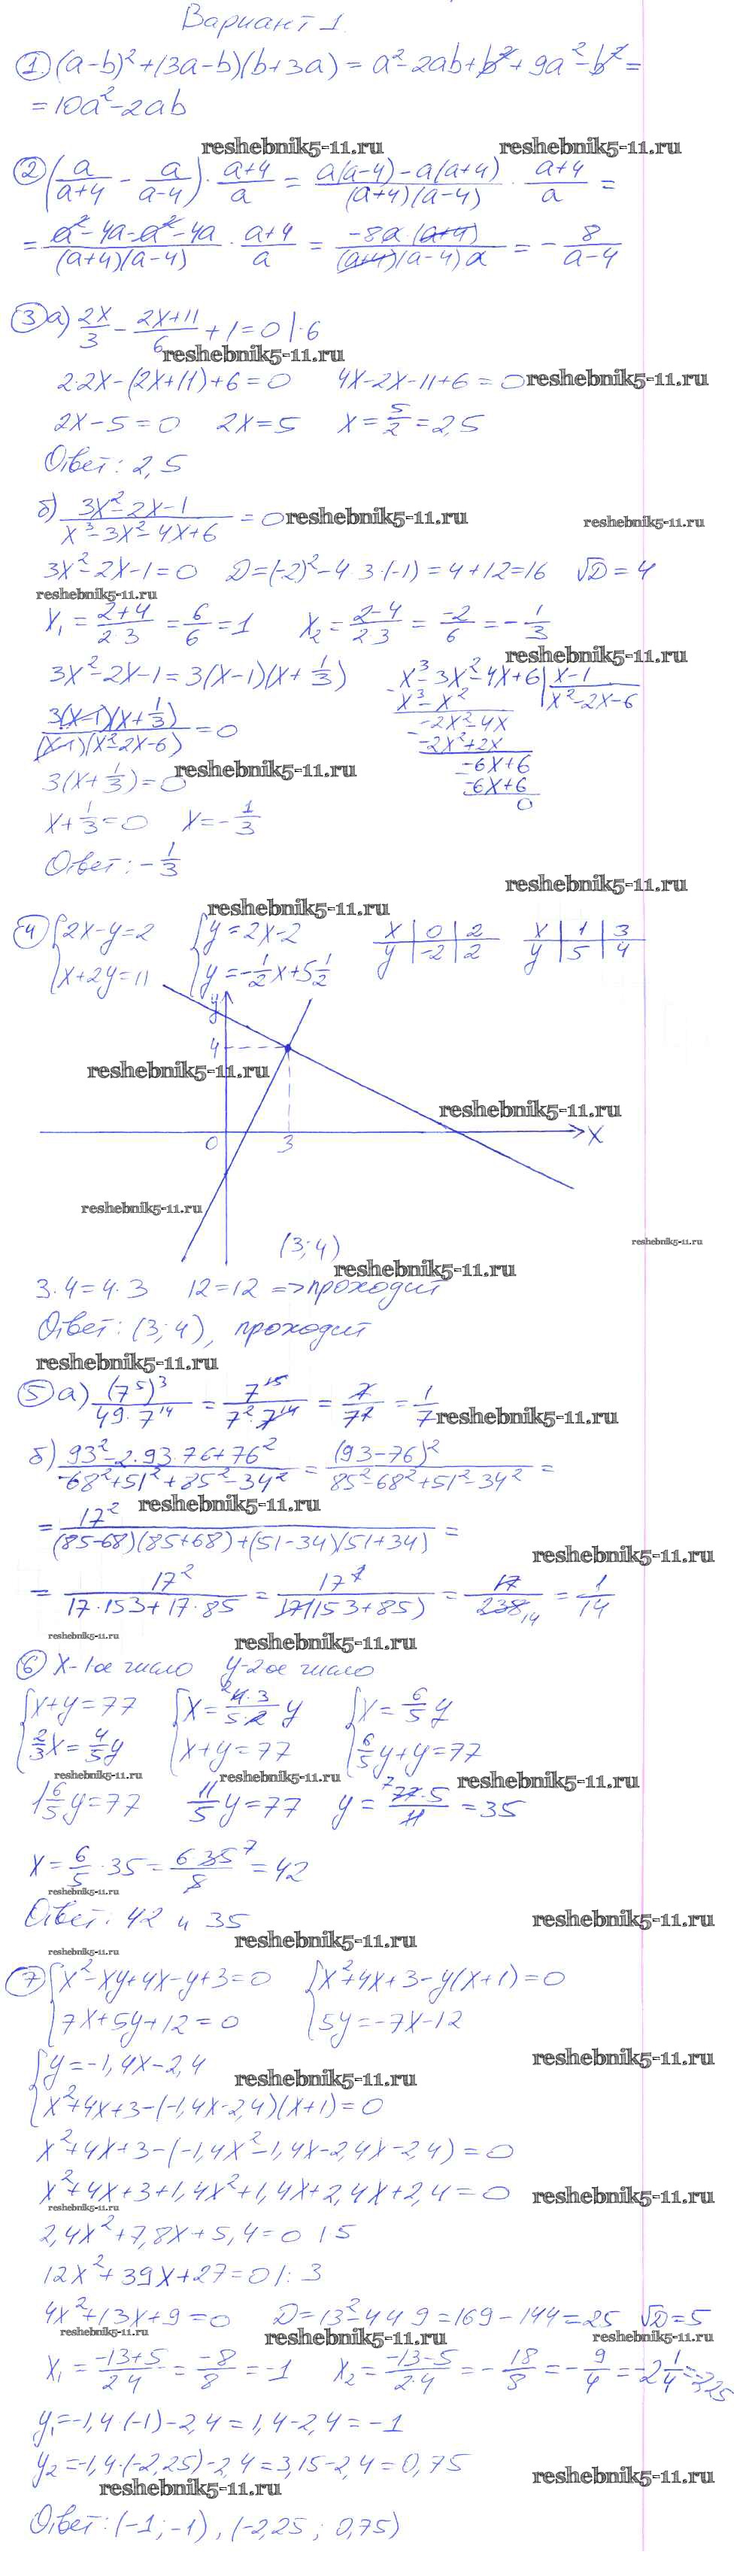 Вариант 1.
① (a-b)²+(3a-b)(b+3a) = a²-2ab+b²+9a²-b² =
= 10a²-2ab
reshebnik5-11.ru reshebnik5-11.ru
② (a/(a+4) - a/(a-4)) · (a+4)/a = (a(a-4)-a(a+4))/((a+4)(a-4)) · (a+4)/a =
= (a²-4a-a²-4a)/((a+4)(a-4)) · (a+4)/a = (-8a·(a+4))/((a+4)(a-4)a) = -8/(a-4)
③ а) 2x/3 - (2x+11)/6 + 1 = 0 |·6
reshebnik5-11.ru
2·2x-(2x+11)+6=0 4x-2x-11+6=0 reshebnik5-11.ru
2x-5=0 2x=5 x=5/2=2,5
Ответ: 2,5
б) (3x²-2x-1)/(x³-3x²-4x+6) = 0 reshebnik5-11.ru reshebnik5-11.ru
3x²-2x-1=0 D=(-2)²-4·3·(-1)=4+12=16 √D=4
reshebnik5-11.ru
x₁=(2+4)/(2·3)=6/6=1 x₂=(2-4)/(2·3)=-2/6=-1/3
reshebnik5-11.ru
3x²-2x-1=3(x-1)(x+1/3) x³-3x²-4x+6 | x-1
x³-x² x²-2x-6
(3(x-1)(x+1/3))/((x-1)(x²-2x-6))=0 -2x²-4x
-2x²+2x
3(x+1/3)=0 reshebnik5-11.ru -6x+6
-6x+6
0
x+1/3=0 x=-1/3
Ответ: -1/3
reshebnik5-11.ru
reshebnik5-11.ru
④ {2x-y=2 {y=2x-2 x | 0 | 2 x | 1 | 3
{x+2y=11 {y=-1/2x+5 1/2 y | -2 | 2 y | 5 | 4
y
4
reshebnik5-11.ru
reshebnik5-11.ru
0 3 x
reshebnik5-11.ru
(3; 4) reshebnik5-11.ru
reshebnik5-11.ru
3·4=4·3 12=12 => проходит
Ответ: (3; 4), проходит
reshebnik5-11.ru
⑤ а) (7⁵)³/(49·7¹⁴) = 7¹⁵/(7²·7¹⁴) = 7/7² = 1/7 reshebnik5-11.ru
б) (93²-2·93·76+76²)/(-68²+51²+85²-34²) = (93-76)²/(85²-68²+51²-34²) =
reshebnik5-11.ru
= 17²/((85-68)(85+68)+(51-34)(51+34)) =
reshebnik5-11.ru
= 17²/(17·153+17·85) = 17²/(17(153+85)) = 17/238 14 = 1/14
reshebnik5-11.ru reshebnik5-11.ru
⑥ x-1ое число y-2ое число
{x+y=77 {x=(4·3)/(5·2)y {x=6/5y
{2/3x=4/5y {x+y=77 {6/5y+y=77
reshebnik5-11.ru reshebnik5-11.ru reshebnik5-11.ru
1 6/5y=77 11/5y=77 y=(77·5)/11=35
x=6/5·35=(6·35)/5=42
reshebnik5-11.ru
Ответ: 42 и 35 reshebnik5-11.ru
reshebnik5-11.ru
reshebnik5-11.ru
⑦ {x²-xy+4x-y+3=0 {x²+4x+3-y(x+1)=0
{7x+5y+12=0 {5y=-7x-12
reshebnik5-11.ru
{y=-1,4x-2,4 reshebnik5-11.ru
{x²+4x+3-(-1,4x-2,4)(x+1)=0
x²+4x+3-(-1,4x²-1,4x-2,4x-2,4)=0
x²+4x+3+1,4x²+1,4x+2,4x+2,4=0 reshebnik5-11.ru
reshebnik5-11.ru
2,4x²+7,8x+5,4=0 |·5
12x²+39x+27=0 |:3
4x²+13x+9=0 D=13²-4·4·9=169-144=25 √D=5
reshebnik5-11.ru reshebnik5-11.ru reshebnik5-11.ru
x₁=(-13+5)/(2·4)=-8/8=-1 x₂=(-13-5)/(2·4)=-18/8=-9/4=-2 1/4=-2,25
y₁=-1,4·(-1)-2,4=1,4-2,4=-1
y₂=-1,4·(-2,25)-2,4=3,15-2,4=0,75
reshebnik5-11.ru reshebnik5-11.ru
Ответ: (-1; -1), (-2,25; 0,75)